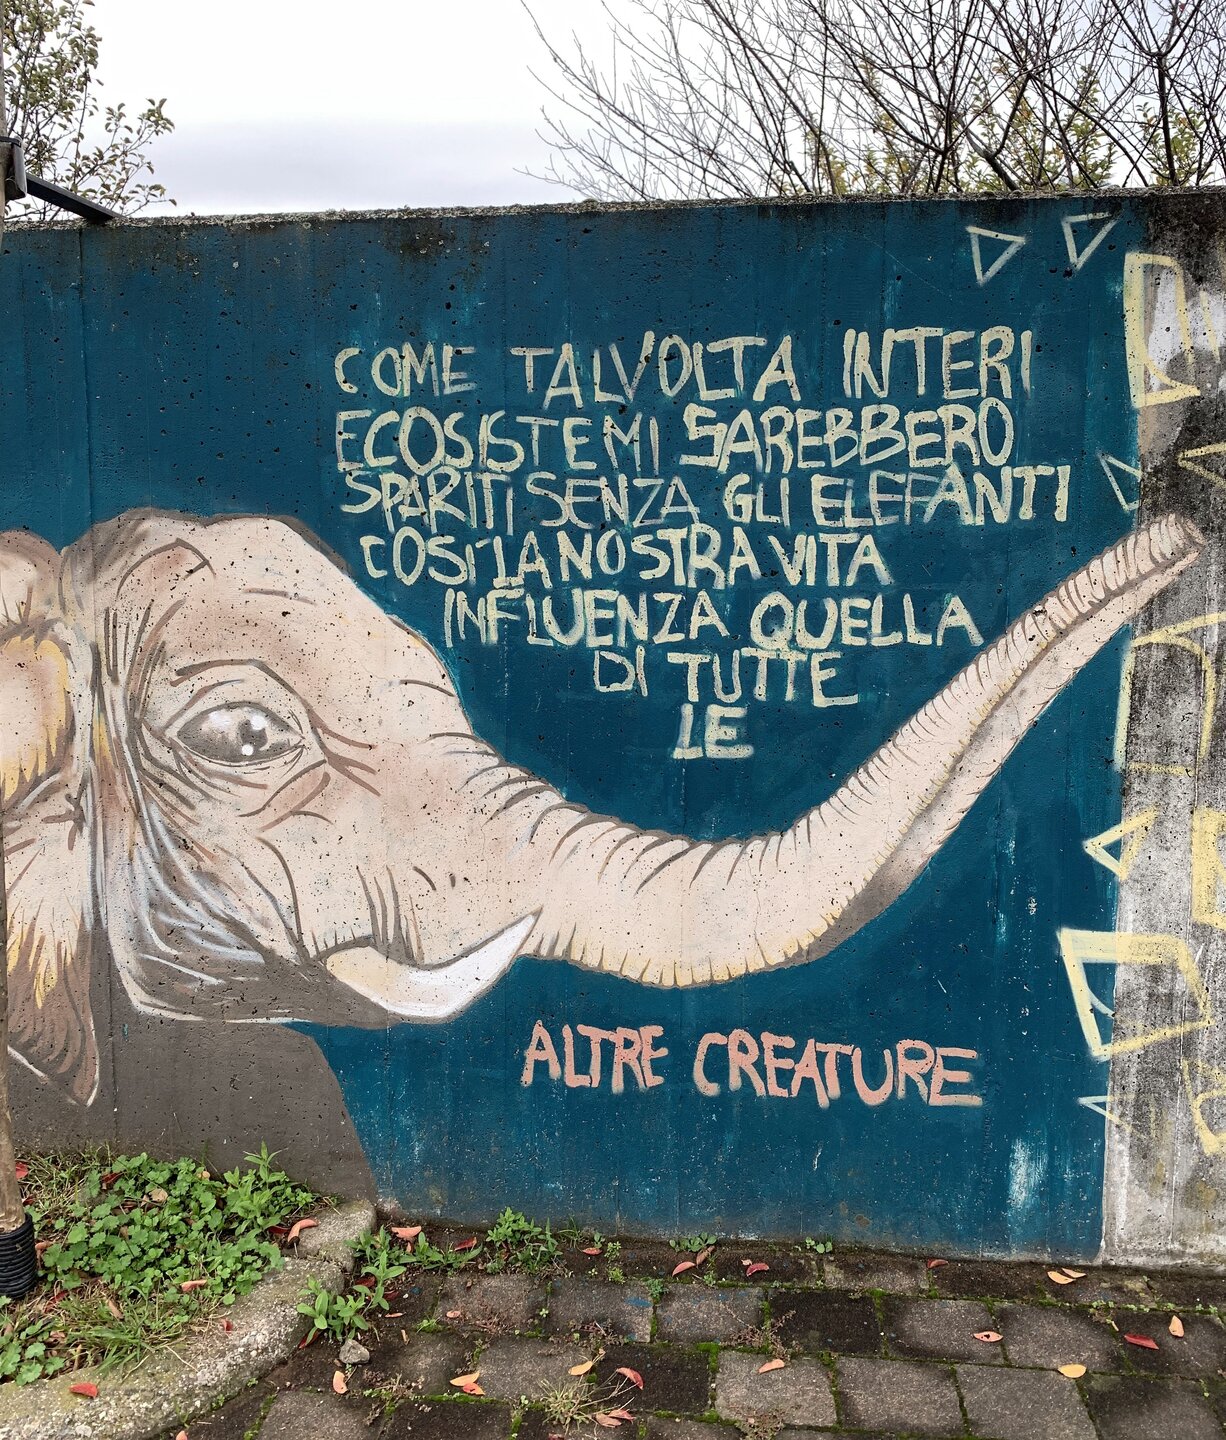 COME TALVOLTA INTERI
ECOSISTEMI SAREBBERO
SPARITI SENZA GLI ELEFANTI
COSÌ LA NOSTRA VITA
INFLUENZA QUELLA
DI TUTTE
LE
ALTRE CREATURE